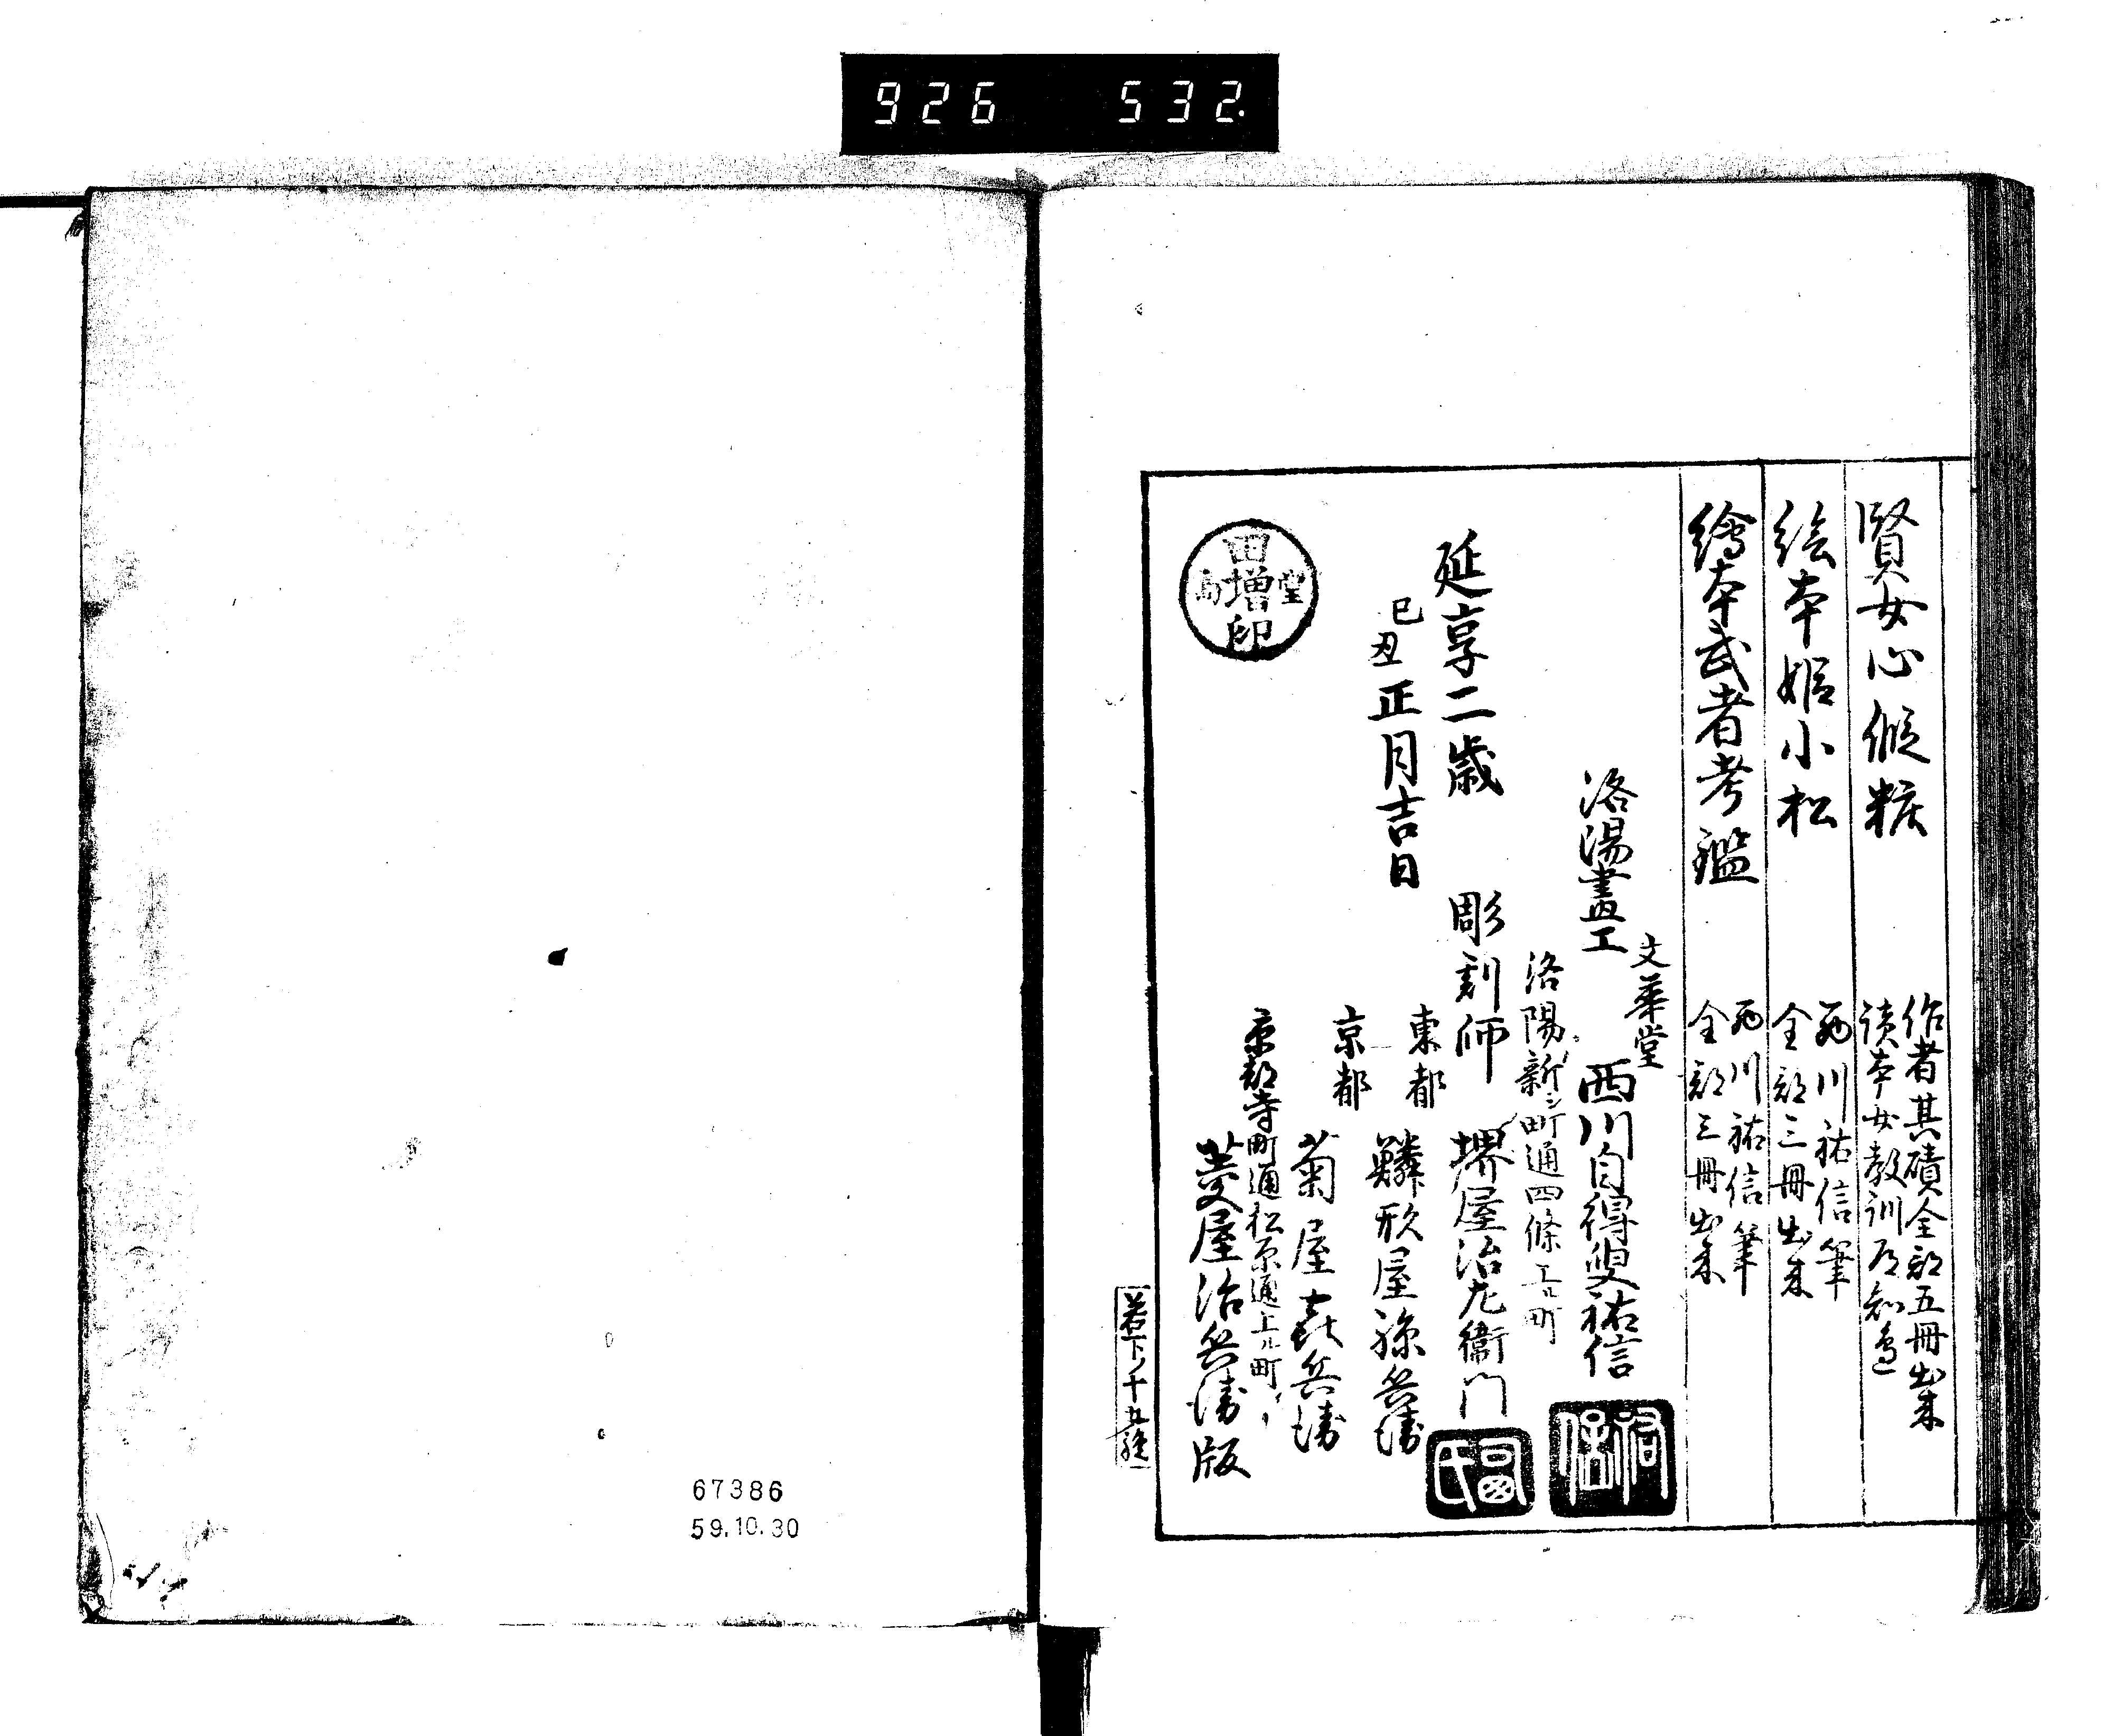 926 532.
賢女心假粧
作者其磧全部五冊出来
読本女教訓
絵本姫小松
西川祐信筆
全部三冊出来
繪本武者考鑑
西川祐信筆
全部三冊出来
文華堂
洛陽畫工 西川自得叟祐信
祐信
洛陽新シ町通四條上ル町
彫刻師 堺屋治左衛門
氏
延享二歳
巳丑正月吉日
東都 鱗形屋孫兵衛
京都 菊屋喜兵衛
京都寺町通松原通上ル町
菱屋治兵衛版
田増印
堂
若下ノ十九
67386
59.10.30